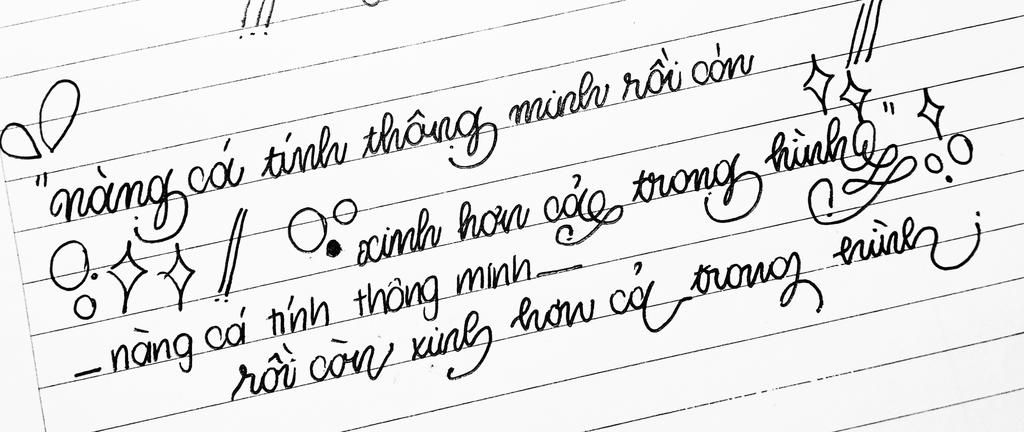 "nàng cá tính thông minh rồi còn
xinh hơn cả trong hình"
_ nàng cá tính thông minh _
rồi còn xinh hơn cả trong hình